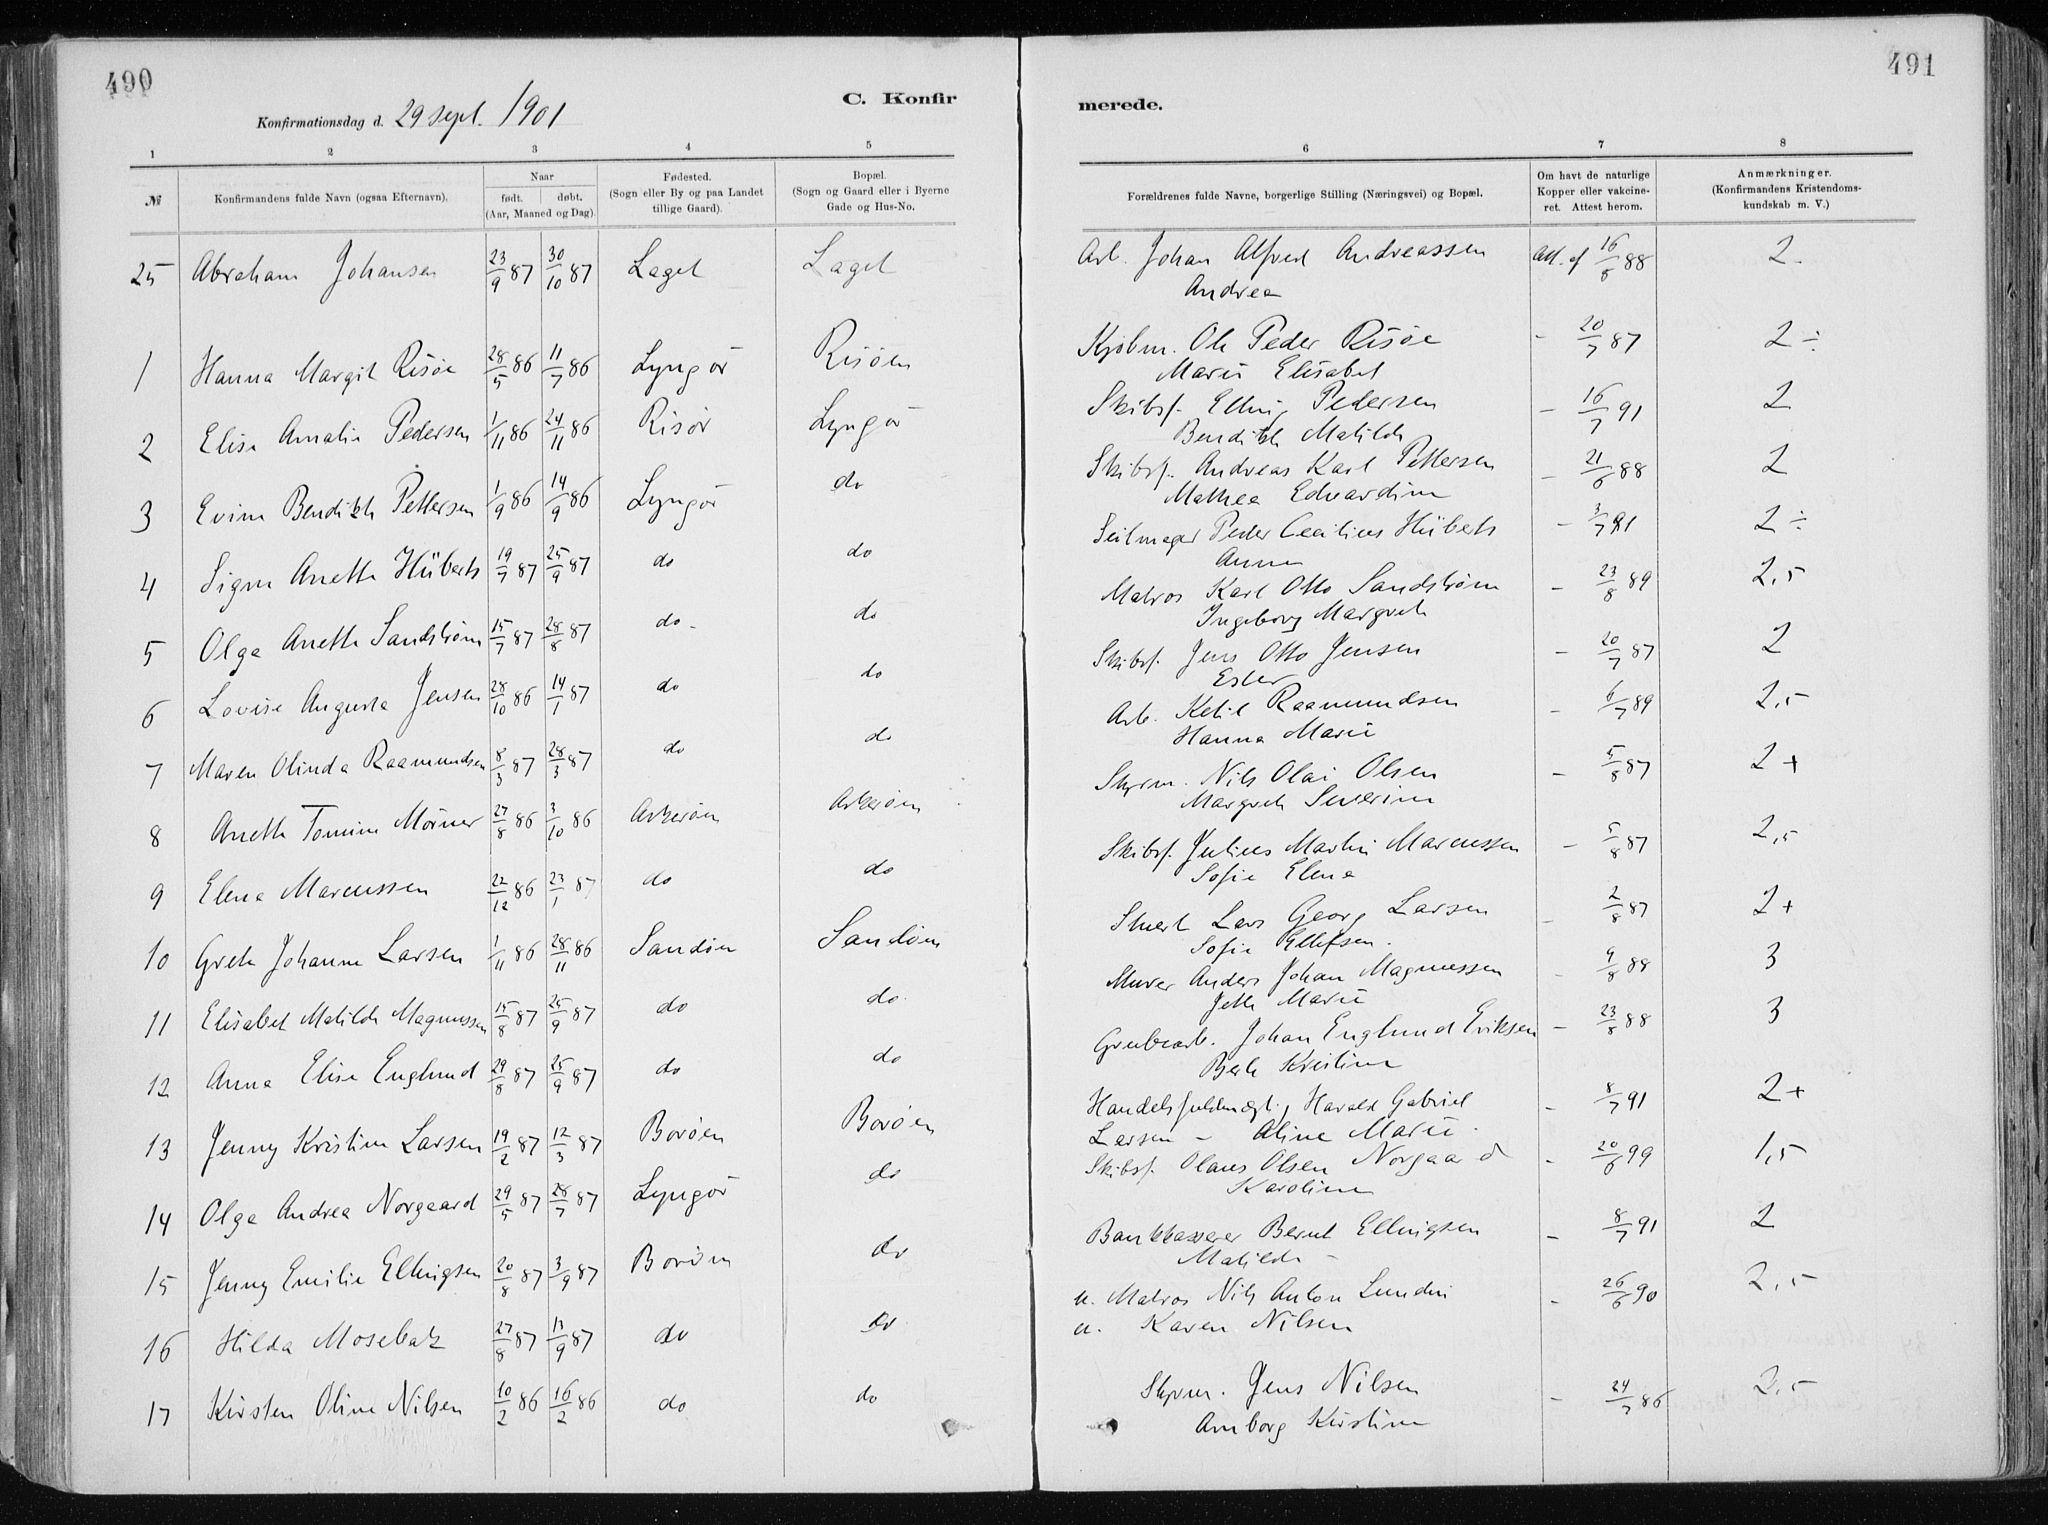 490
491
Konfirmationsdag d. 29 sept. 1901
C. Konfir
merede.
1 2 3 4 5 6 7 8
№ Konfirmandens fulde Navn (ogsaa Efternavn). Naar født. døbt. (Aar, Maaned og Dag). Fødested. (Sogn eller By og paa Landet tillige Gaard). Bopæl. (Sogn og Gaard eller i Byerne Gade og Hus-No. Forældrenes fulde Navne, borgerlige Stilling (Næringsvei) og Bopæl. Om havt de naturlige Kopper eller vakcineret. Attest herom. Anmærkninger. (Konfirmandens Kristendomskundskab m. V.)
25 Abraham Johansen 23/9 87 30/10 87 Laget Laget Arb. Johan Alfred Andreassen Att. af 16/8 88 2.
Andrea
1 Hanna Margit Risøe 28/5 86 11/7 86 Lyngör Risöen Kjøbm. Ole Peder Risöe - 20/7 87 2÷
Marie Elisabet
2 Elise Amalie Pedersen 1/11 86 24/11 86 Risör Lyngör Skibsf. Elling Pedersen - 16/7 91 2
Bendikte Matilde
3 Evine Bendikte Pettersen 1/9 86 14/9 86 Lyngör do Skibsf. Andreas Karl Pettersen - 21/6 88 2
Mathea Edvardine
4 Signe Anette Hüberts 19/7 87 25/9 87 do do Seilmager Peder Cecilius Hüberts - 3/7 91 2÷
Anne
5 Olga Anette Sandström 15/7 87 28/8 87 do do Matros Karl Otto Sandström - 23/8 89 2,5
Ingeborg Margrete
6 Lovise Augusta Jensen 28/10 86 14/1 87 do do Skibsf. Jens Otto Jensen - 20/7 87 2
Ester
7 Maren Olinda Raamundsen 8/3 87 28/3 87 do do Arb. Ketil Raamundsen - 6/7 89 2,5
Hanna Marie
8 Anette Tomine Mörner 27/8 86 3/10 86 Askeröen Askeröen Styrm. Nils Olai Olsen - 5/8 87 2+
Margrete Severine
9 Elena Marcussen 22/12 86 23/1 87 do do Skibsf. Julius Martin Marcussen - 5/8 87 2,5
Sofie Elene
10 Grete Johanne Larsen 1/11 86 28/11 86 Sandöen Sandöen Stuert Lars Georg Larsen - 2/8 87 2+
Sofie Ellefsen.
11 Elisabet Matilde Magnussen 15/8 87 25/9 87 do do Murer Anders Johan Magnussen - 9/8 88 3
Jette Marie
12 Anna Elise Englund 29/8 87 25/9 87 do do Grubearb. Johan Englund Eriksen - 23/8 88 3
Berte Kristine
13 Jenny Kristine Larsen 19/2 87 12/3 87 Boröen Boröen Handelsfuldmægt. Harald Gabriel - 8/7 91 2+
Larsen - Aline Marie.
14 Olga Andrea Norgaard 29/5 87 28/7 87 Lyngör do Skibsf. Olaus Olsen Norgaard - 20/6 99 1,5
Karoline
15 Jenny Emilie Ellingsen 20/8 87 3/9 87 Boröen do Bankkasserer Bernt Ellingsen - 8/7 91 2
Matilde -
16 Hilda Mosebak 27/8 87 11/9 87 do do u. Matros Nils Anton Lundin - 26/6 90 2,5
u. Karen Nilsen
17 Kirsten Oline Nilsen 10/2 86 16/2 86 do do Styrm. Jens Nilsen - 24/7 86 2,5
Amborg Kirstine